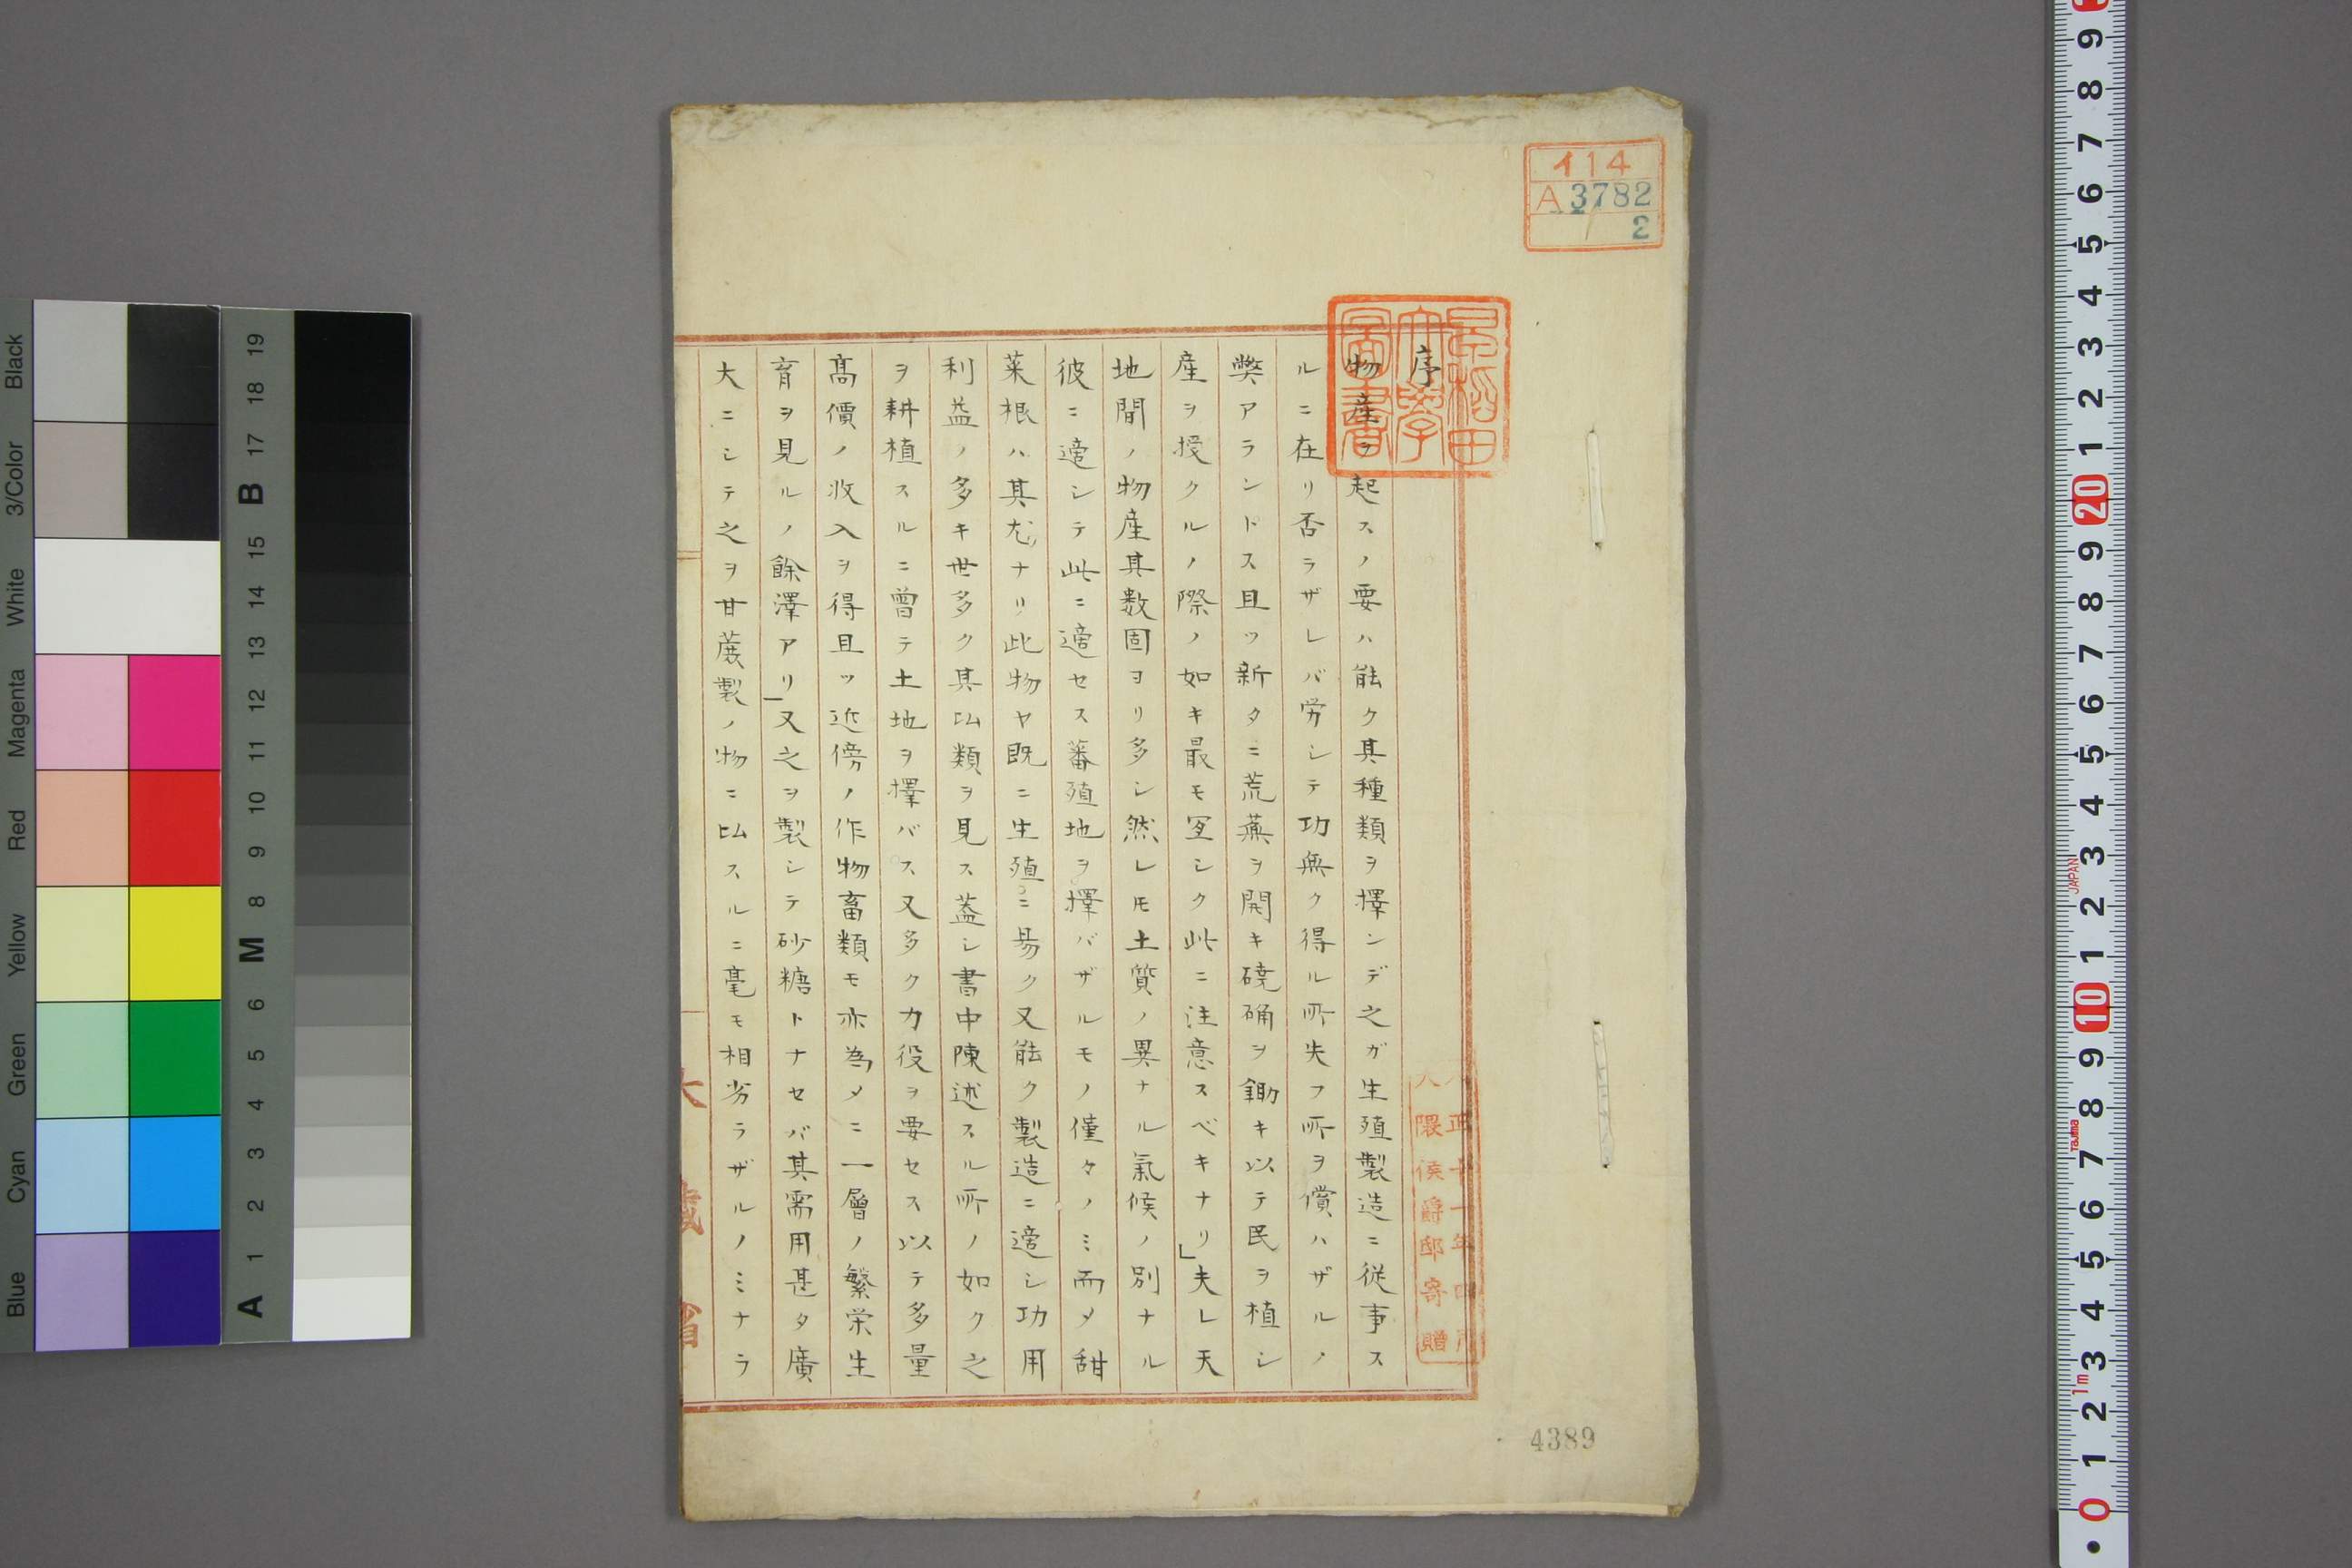 イ14
A3782
2
早稲田
大學
圖書
序
物産ヲ起スノ要ハ能ク其種類ヲ擇ンデ之ガ生殖製造ニ従事ス
ルニ在リ否ラザレバ労シテ功無ク得ル所失フ所ヲ償ハザルノ
弊アランドス且ツ新タニ荒蕪ヲ開キ磽确ヲ鋤キ以テ民ヲ植シ
産ヲ授クルノ際ノ如キ最モ宜シク此ニ注意スベキナリ」夫レ天
地間ノ物産其数固ヨリ多シ然レ𪜈土質ノ異ナル氣候ノ別ナル
彼ニ適シテ此ニ適セス蕃殖地ヲ擇バザルモノ僅々ノミ而メ甜
菜根ハ其尤ナリ此物ヤ既ニ生殖ニ昜ク又能ク製造ニ適シ功用
利益ノ多キ世多ク其比類ヲ見ス蓋シ書中陳述スル所ノ如ク之
ヲ耕植スルニ曽テ土地ヲ擇バス又多ク力役ヲ要セス以テ多量
髙價ノ收入ヲ得且ツ近傍ノ作物畜類モ亦為メニ一層ノ繁栄生
育ヲ見ルノ餘澤アリ」又之ヲ製シテ砂糖トナセバ其需用甚タ廣
大ニシテ之ヲ甘蔗製ノ物ニ比スルニ毫モ相劣ラザルノミナラ
大藏省
大正十一年四月
大隈侯爵邸寄贈
4389
Black
3/Color
White
Magenta
Red
Yellow
Green
Cyan
Blue
19
18
17
B
16
15
14
13
12
11
10
9
8
M
7
6
5
4
3
2
1
A
9
8
7
6
5
4
3
2
1
20
9
8
7
6
5
4
3
JAPAN
2
1
10
9
8
Tajima
7
6
5
4
3
1m
2
1
0